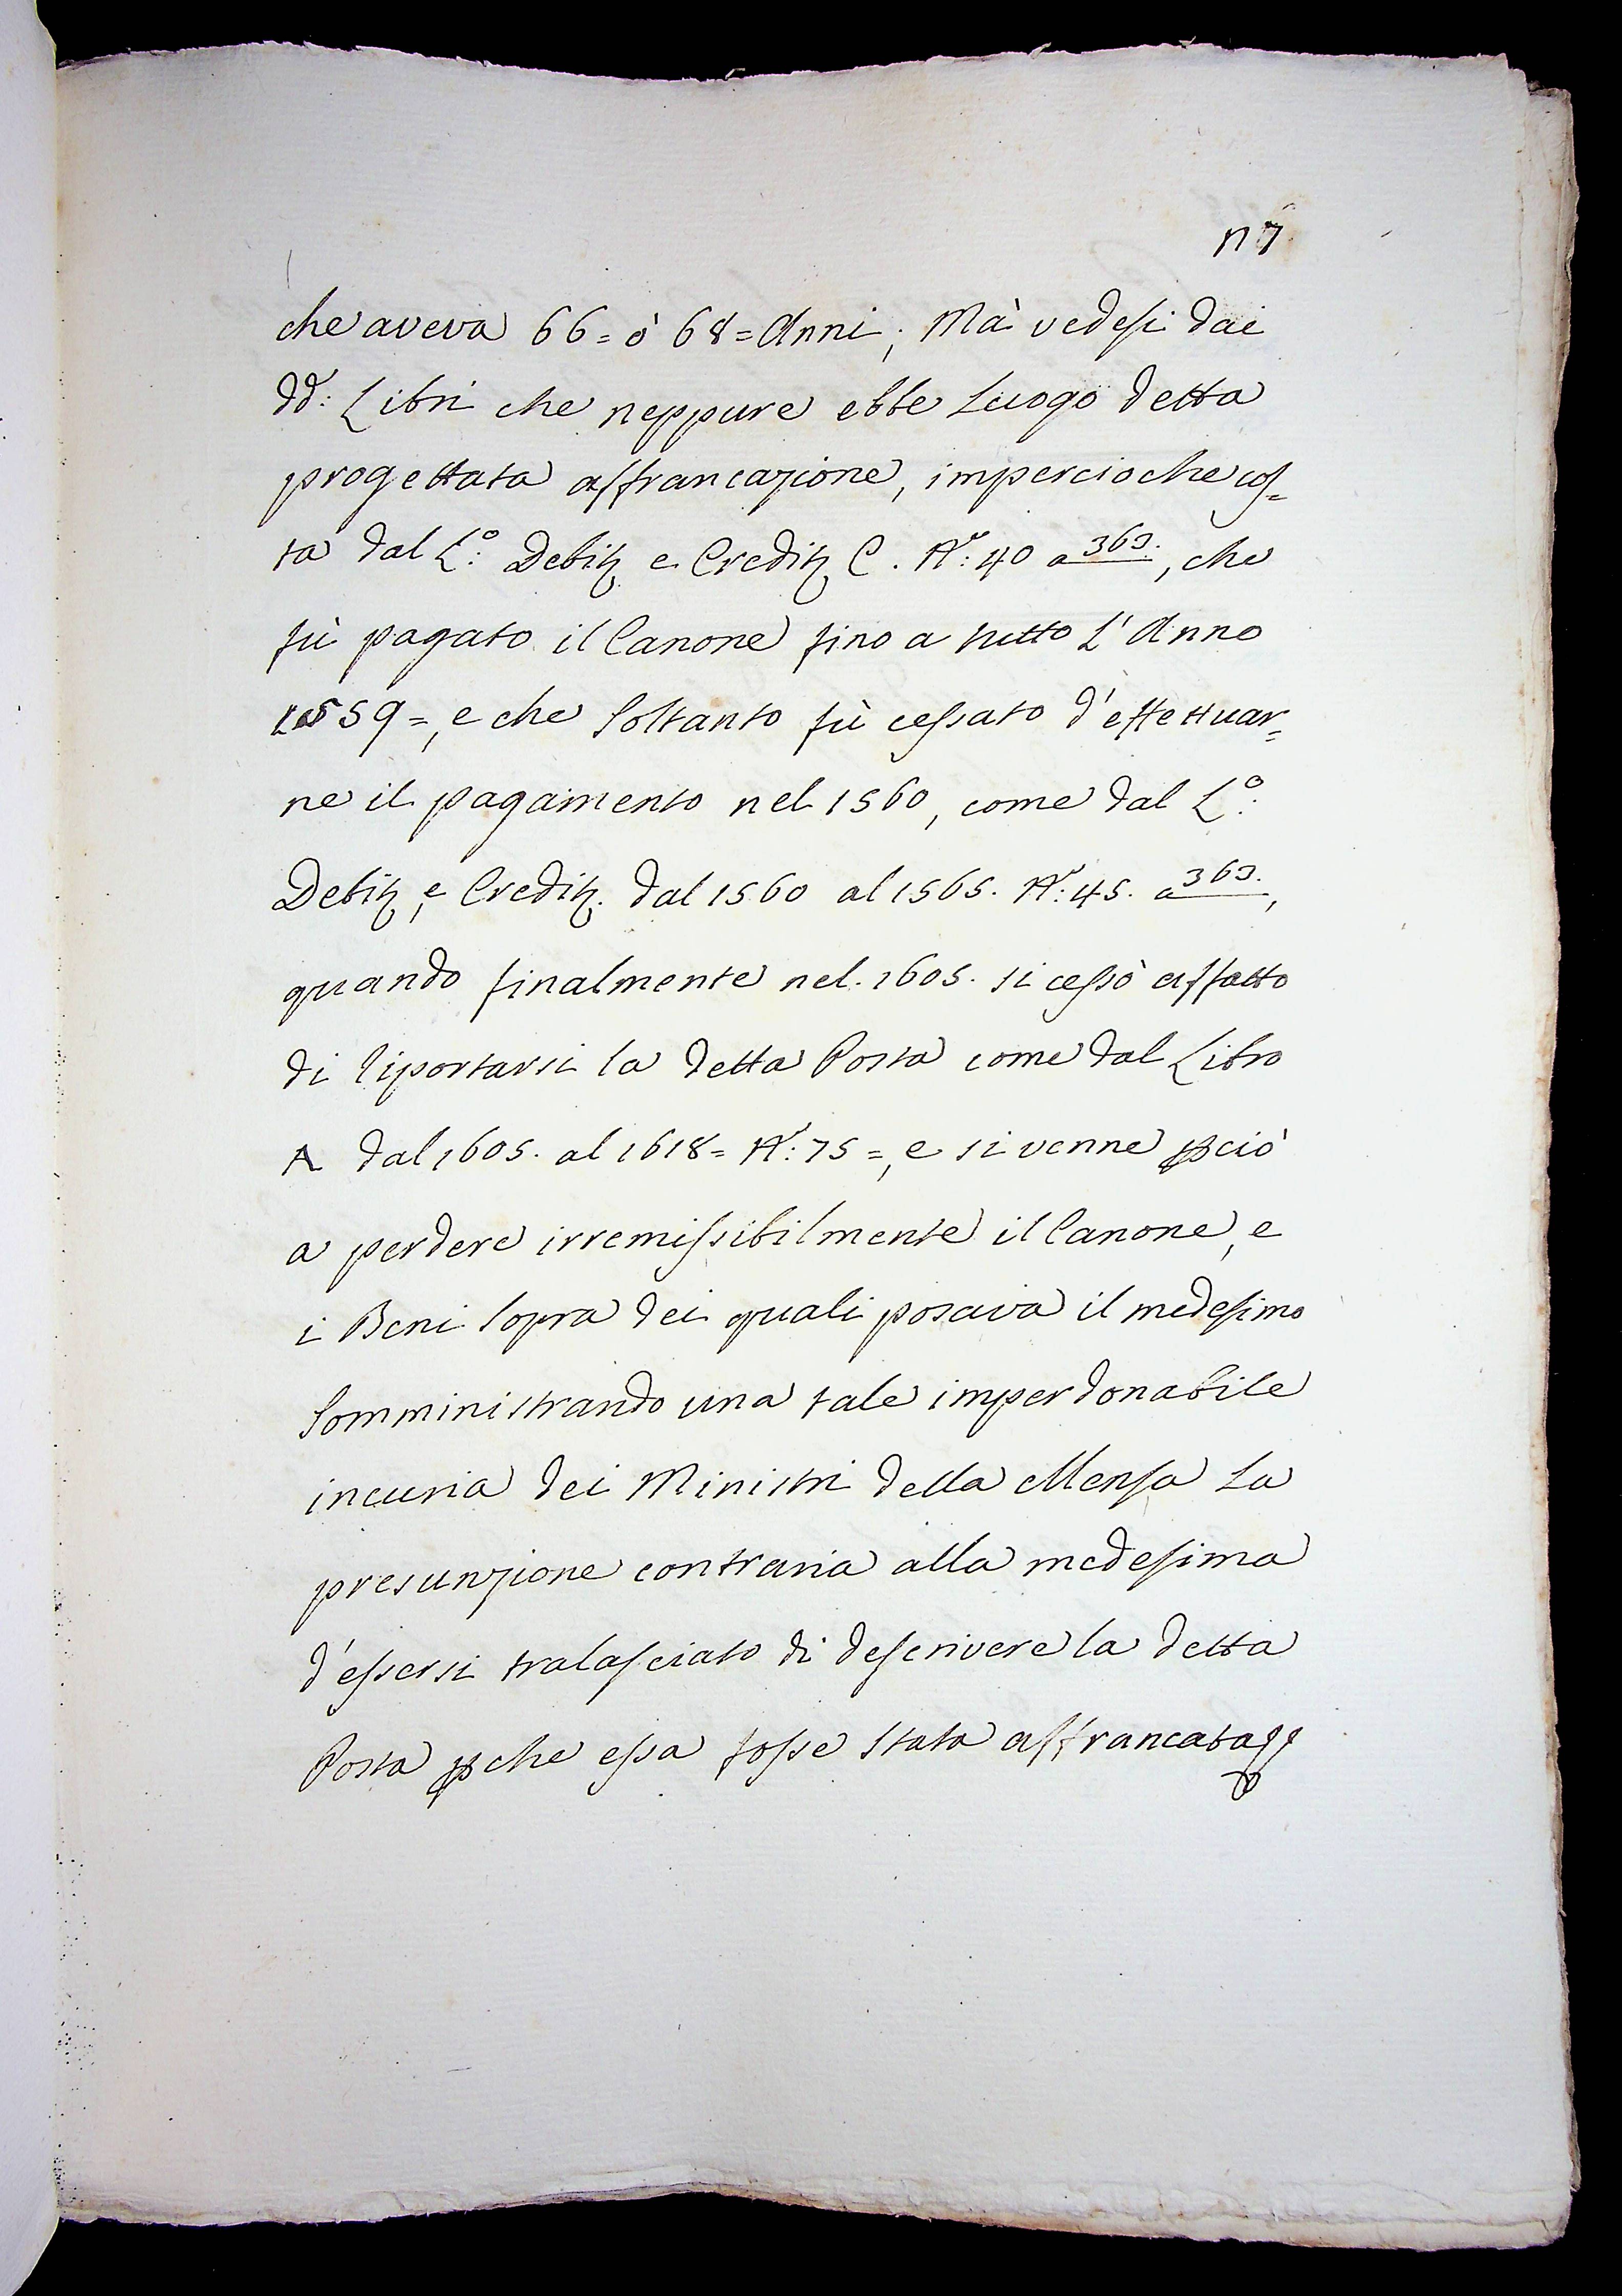 117
che aveva 66= ò 68= Anni; Mà vedesi dai
dd: Libri che neppure ebbe Luogo detta
progettata affrancazione, impercioche cos=
ta dal L.º: Debit. e Credit. C. N.º: 40 a 363., che
fù pagato il Canone fino a tutto L'Anno
1559=, e che Soltanto fù cessato d'effettuar=
ne il pagamento nel 1560, come dal L.º:
Debit. e Credit. dal 1560 al 1565. N.º: 45. a 363.,
quando finalmente nel 1605. si cessò affatto
di riportarsi la detta Posta come dal Libro
A dal 1605. al 1618= N.º: 75=, e si venne pciò
a perdere irremissibilmente il Canone, e
i Beni Sopra dei quali posava il medesimo
Somministrando una tale imperdonabile
incuria dei Ministri della Mensa La
presunzione contraria alla medesima
d'essersi tralasciato di descrivere la detta
Posta pche essa fosse Stata affrancata